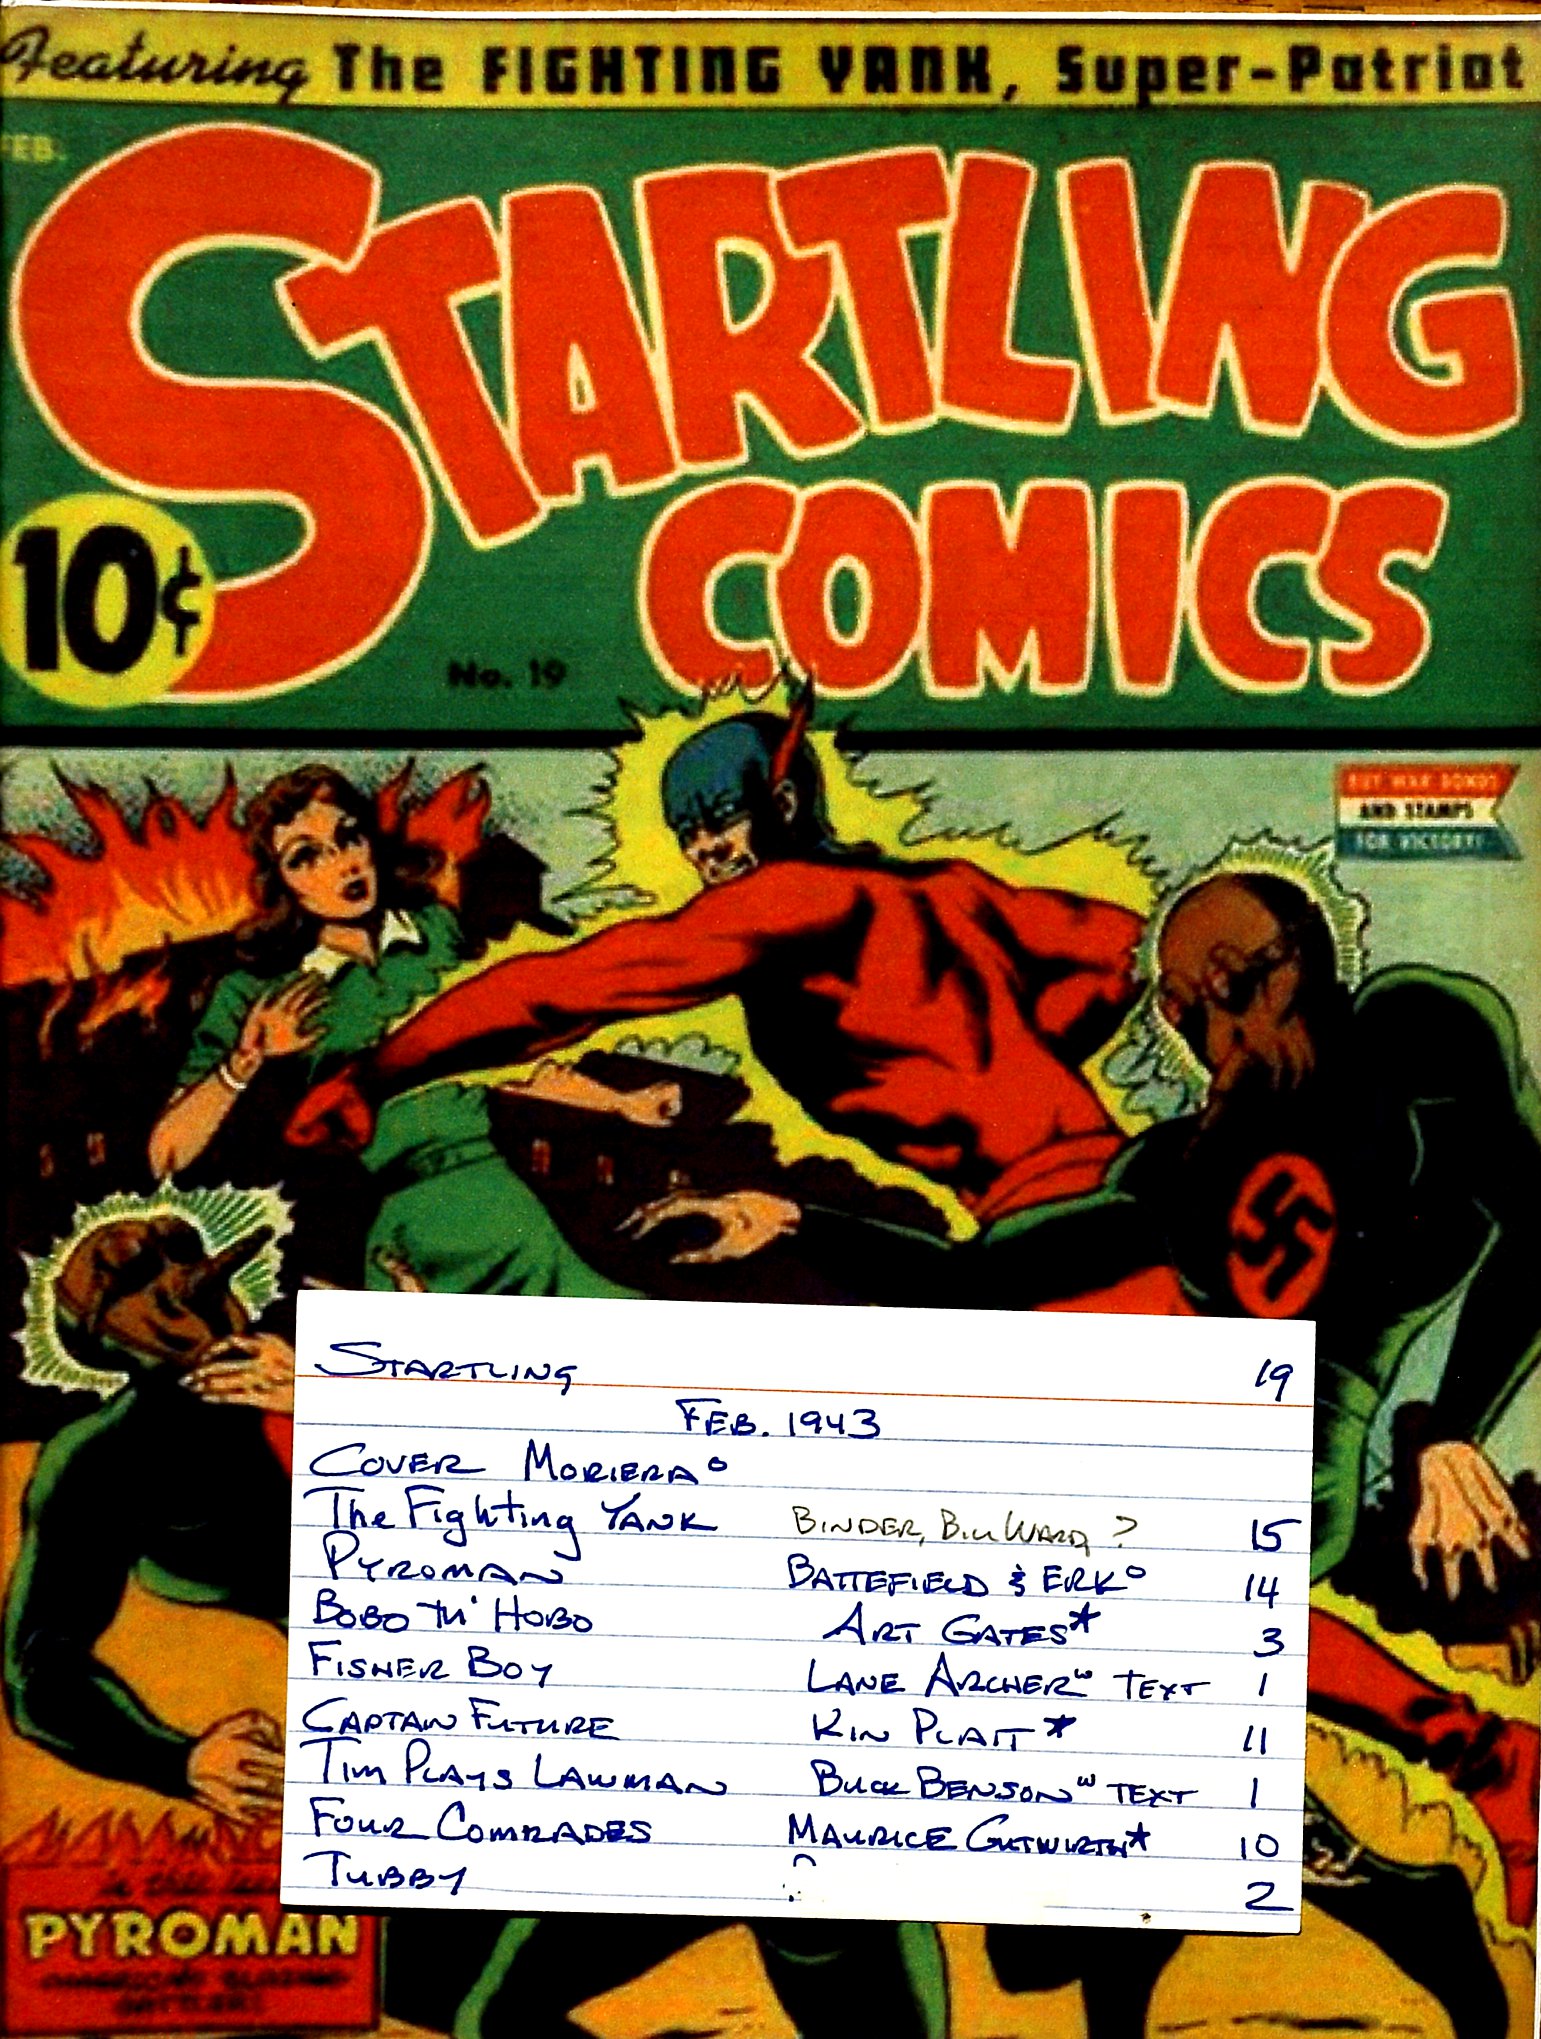 Featuring The FIGHTING YANK, Super-Patriot
FEB.
STARTLING
COMICS
10¢
No. 19
BUY WAR BONDS
AND STAMPS
FOR VICTORY!
STARTLING 19
FEB. 1943
COVER MORIERA°
The Fighting YANK BINDER, BILL WARD, ? 15
PYROMAN BATTEFIELD & ERK° 14
BOBO TH' HOBO ART GATES* 3
FISHER BOY LANE ARCHERʷ TEXT 1
CAPTAIN FUTURE KIN PLATT* 11
TIM PLAYS LAWMAN BUCK BENSONʷ TEXT 1
FOUR COMRADES MAURICE GUTWIRTH* 10
TUBBY ? 2
in this
PYROMAN
AMERICA'S BLAZING
BATTLER!